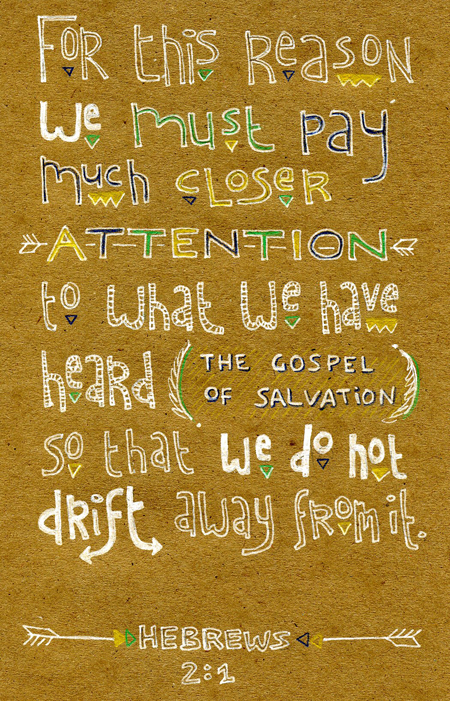 FOR this Reason
we must pay
much closer
ATTENTION
to what we have
heard (THE GOSPEL
OF SALVATION)
so that we do not
drift away from it.
HEBREWS
2:1